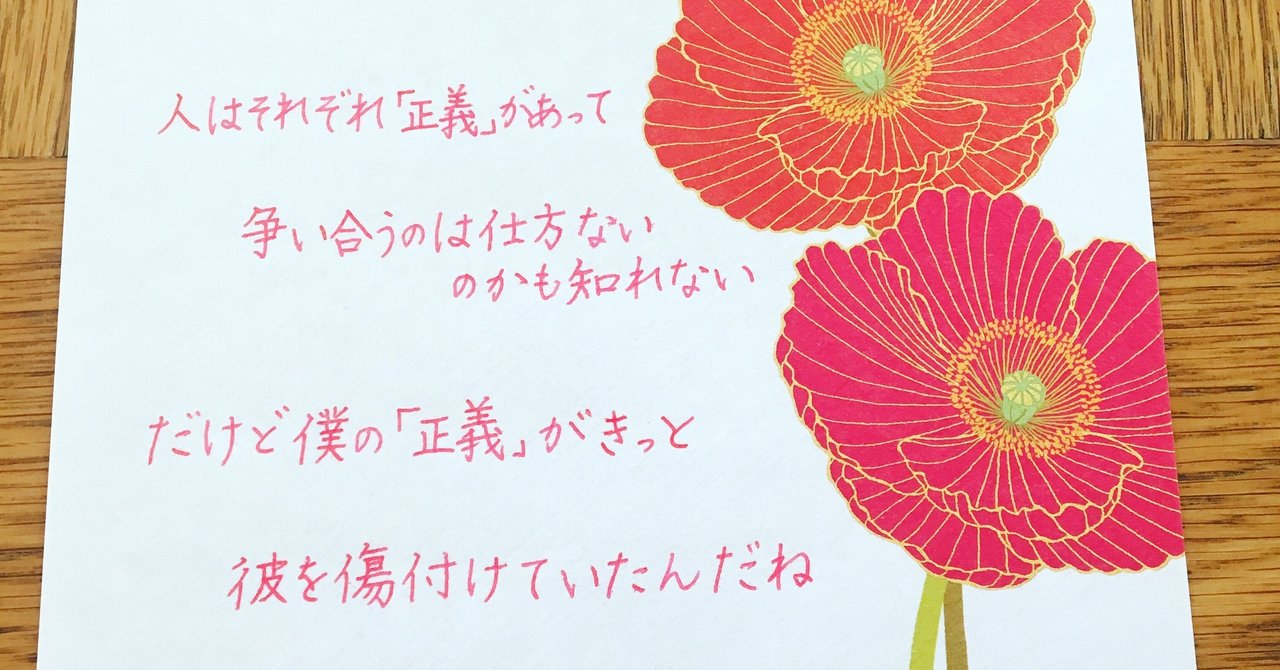 人はそれぞれ「正義」があって
争い合うのは仕方ない
のかも知れない
だけど僕の「正義」がきっと
彼を傷付けていたんだね